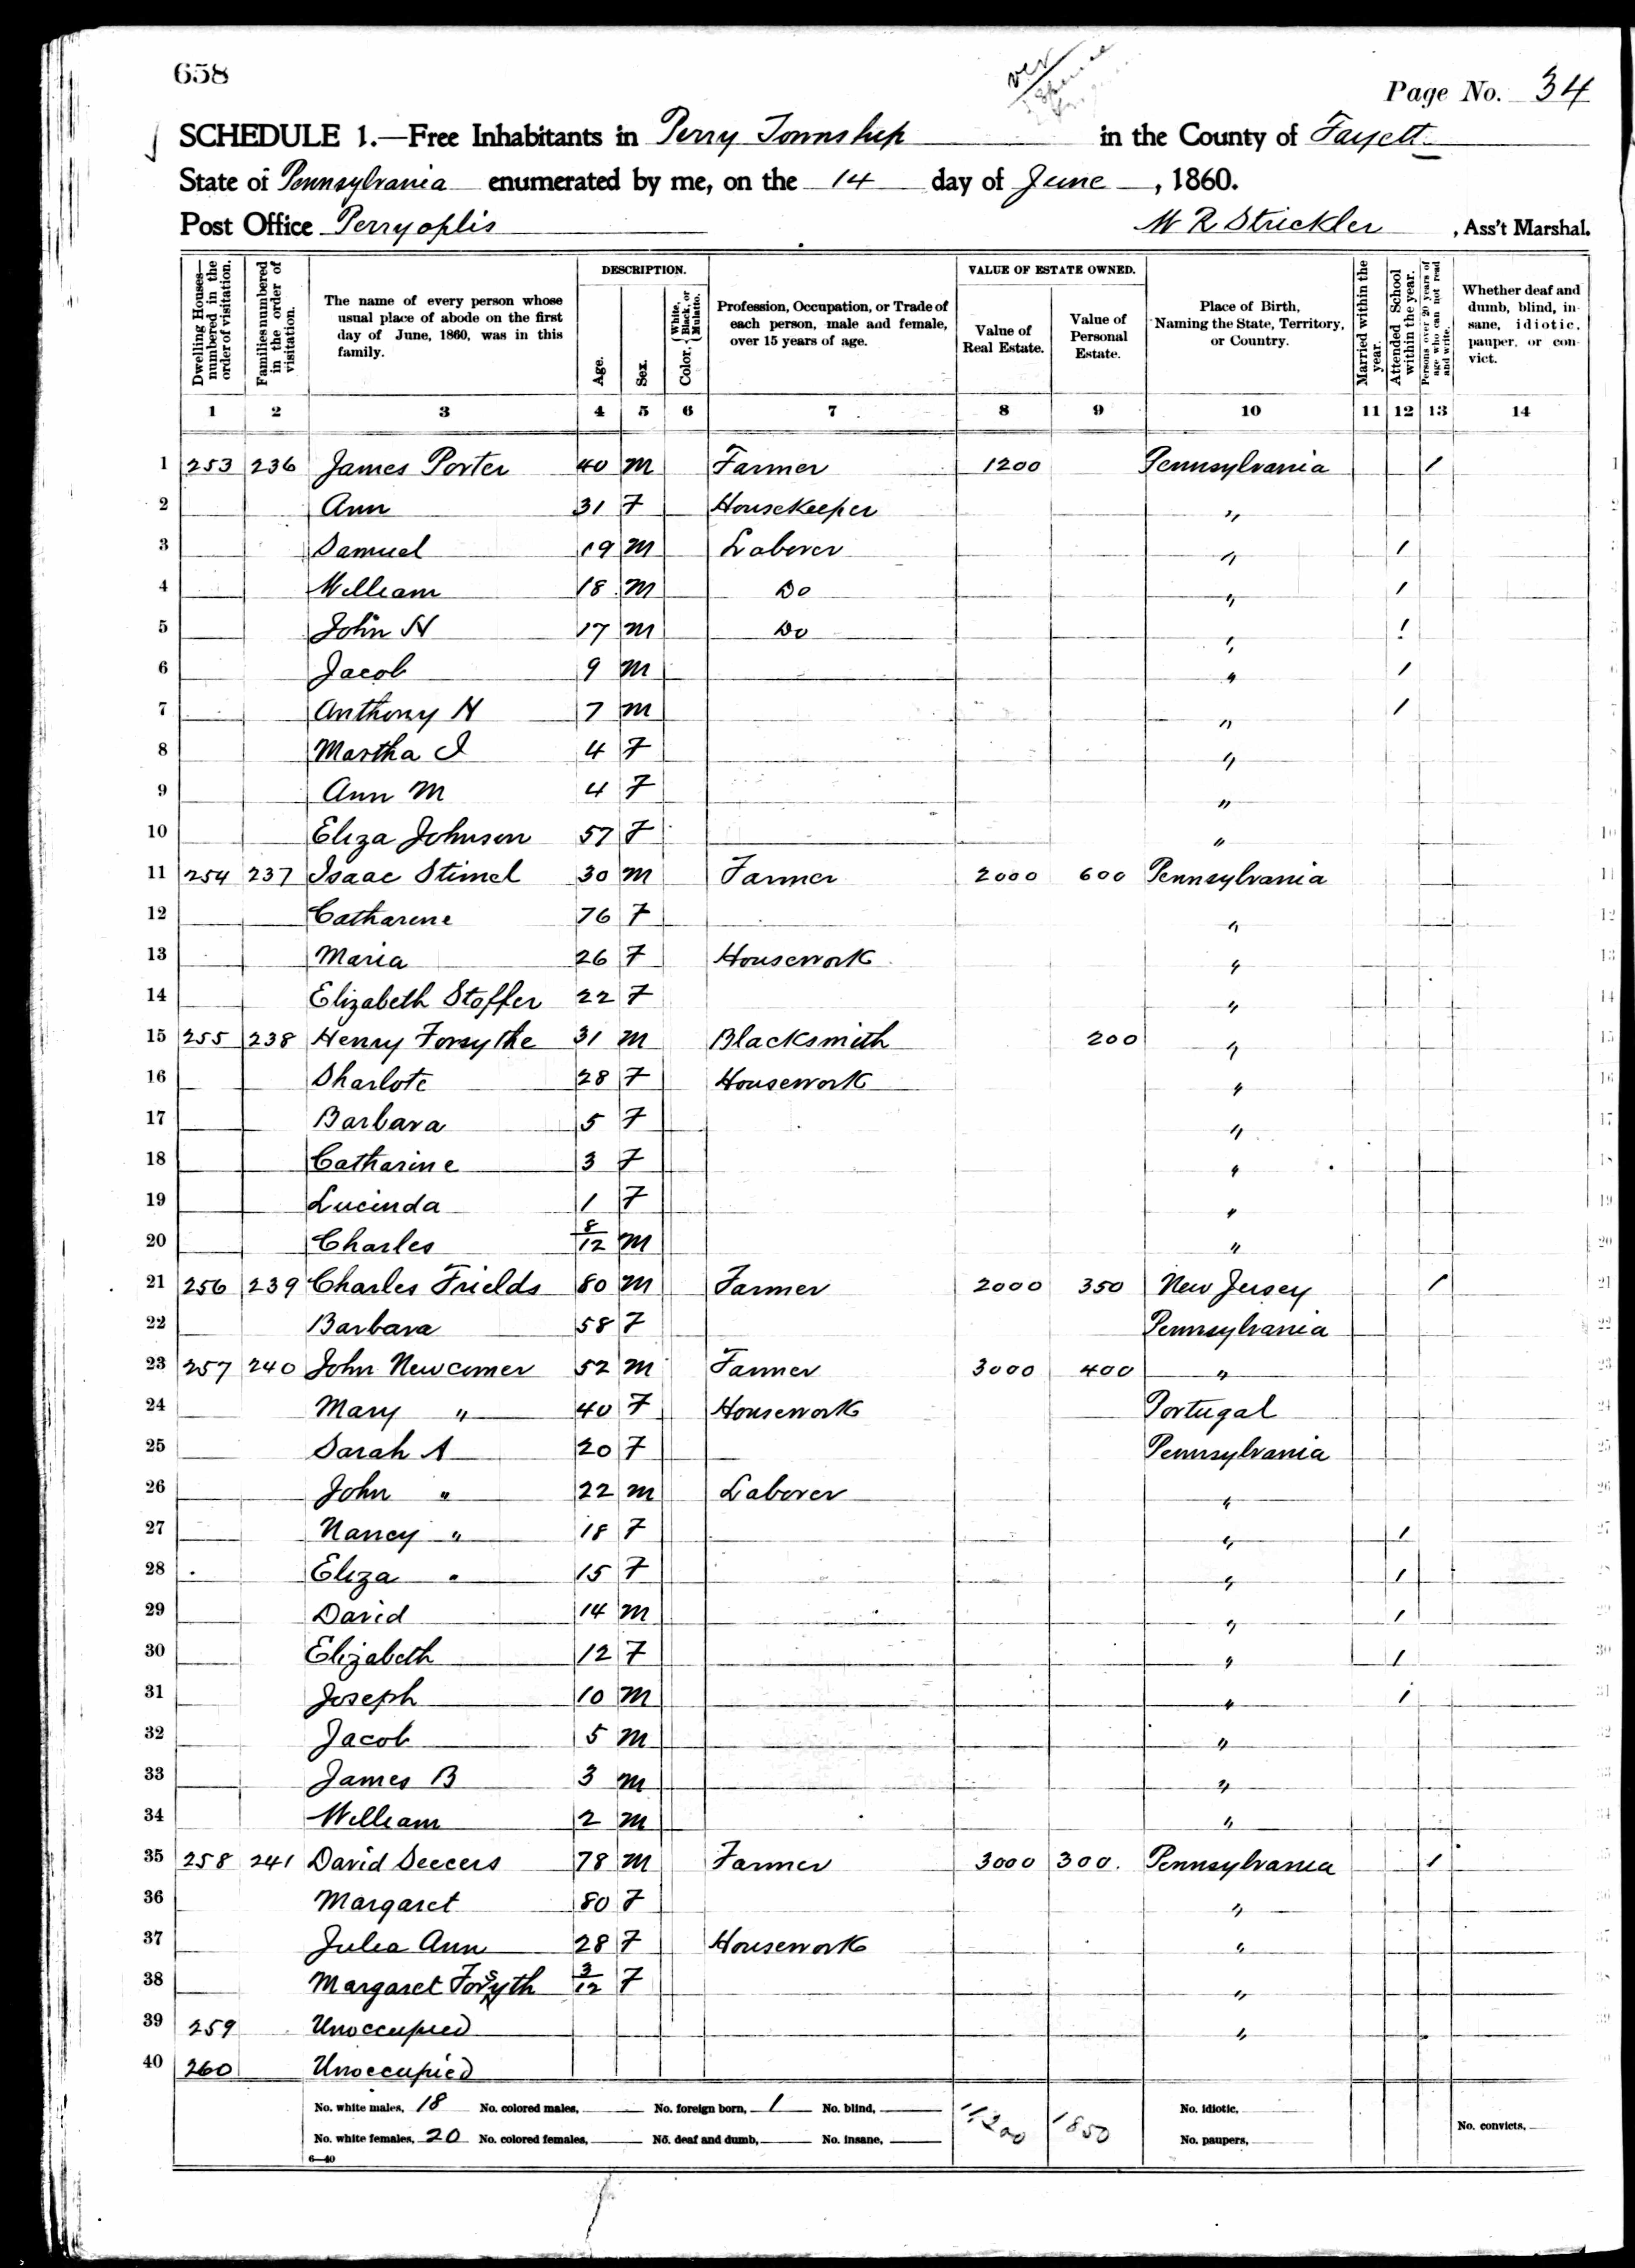 658
Page No. 34
SCHEDULE 1.—Free Inhabitants in Perry Township in the County of Fayett
State of Pennsylvania enumerated by me, on the 14 day of June, 1860.
Post Office Perryoplis W R Strickler, Ass't Marshal.
Dwelling Houses—numbered in the order of visitation.
Families numbered in the order of visitation.
The name of every person whose usual place of abode on the first day of June, 1860, was in this family.
DESCRIPTION.
Age.
Sex.
Color. { White, Black, or Mulatto.
Profession, Occupation, or Trade of each person, male and female, over 15 years of age.
VALUE OF ESTATE OWNED.
Value of Real Estate.
Value of Personal Estate.
Place of Birth, Naming the State, Territory, or Country.
Married within the year.
Attended School within the year.
Persons over 20 years of age who can not read and write.
Whether deaf and dumb, blind, insane, idiotic, pauper, or convict.
1 2 3 4 5 6 7 8 9 10 11 12 13 14
1 253 236 James Porter 40 M Farmer 1200 Pennsylvania /
2 Ann 31 F Housekeeper "
3 Samuel 19 M Laborer " /
4 William 18 M Do " /
5 John H 17 M Do " /
6 Jacob 9 M " /
7 Anthony H 7 M " /
8 Martha J 4 F "
9 Ann M 4 F "
10 Eliza Johnson 57 F "
11 254 237 Isaac Stimel 30 M Farmer 2000 600 Pennsylvania
12 Catharine 76 F "
13 Maria 26 F Housework "
14 Elizabeth Stoffer 22 F "
15 255 238 Henry Forsythe 31 M Blacksmith 200 "
16 Sharlote 28 F Housework "
17 Barbara 5 F "
18 Catharine 3 F "
19 Lucinda 1 F "
20 Charles 8/12 M "
21 256 239 Charles Frields 80 M Farmer 2000 350 New Jersey /
22 Barbara 58 F Pennsylvania
23 257 240 John Newcomer 52 M Farmer 3000 400 "
24 Mary " 40 F Housework Portugal
25 Sarah A 20 F Pennsylvania
26 John " 22 M Laborer "
27 Nancy " 18 F " /
28 Eliza " 15 F " /
29 David 14 M " /
30 Elizabeth 12 F " /
31 Joseph 10 M " /
32 Jacob 5 M "
33 James B 3 M "
34 William 2 M "
35 258 241 David Seecers 78 M Farmer 3000 300. Pennsylvania /
36 Margaret 80 F "
37 Julia Ann 28 F Housework "
38 Margaret Forsyth 3/12 F "
39 259 Unoccupied "
40 260 Unoccupied
No. white males, 18 No. colored males, No. foreign born, 1 No. blind, 11200 1850 No. idiotic,
No. white females, 20 No. colored females, No. deaf and dumb, No. insane, No. paupers, No. convicts,
6—40